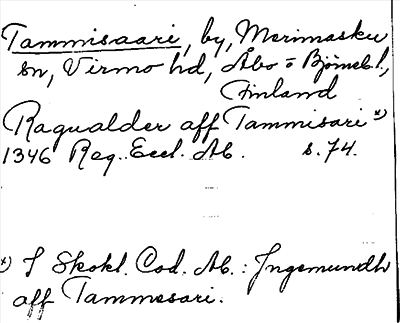 Tammisaari, by, Merimasku
sn, Virmo hd, Åbo = Björneb. l.,
Finland
Ragualder aff Tammisari x)
1346 Reg. Eccl. Ab. s. 74.
x) I Skokl. Cod. Ab.: Ingemundh
aff Tammesari.